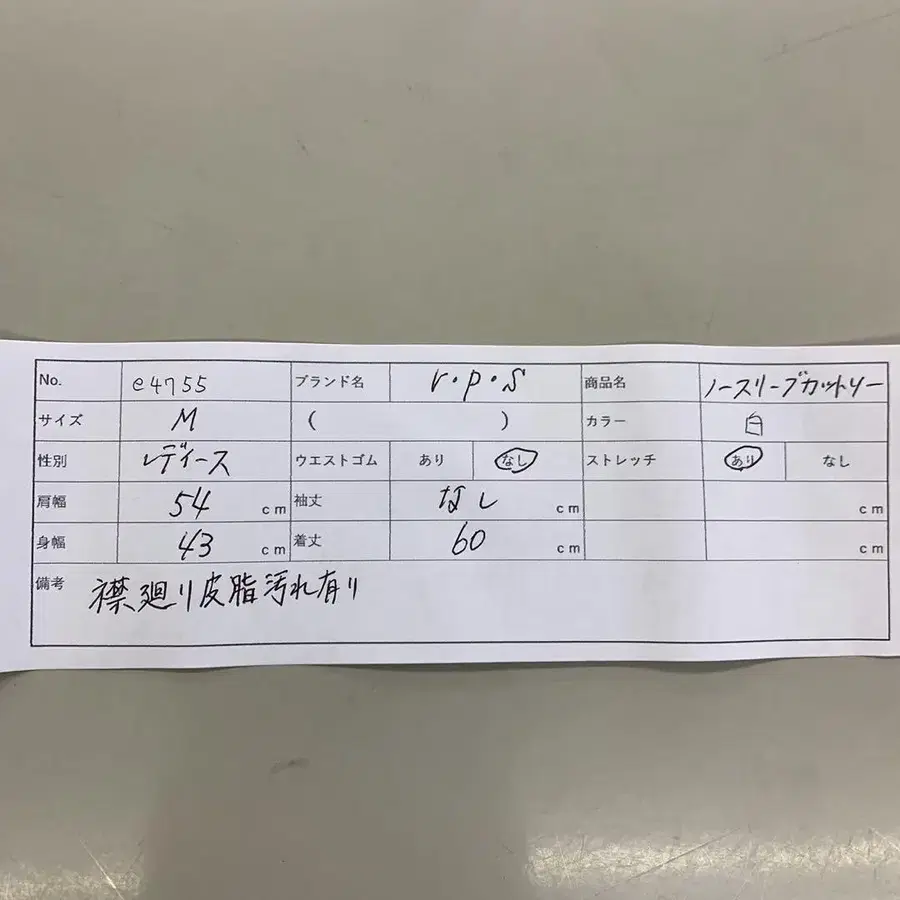 No. e4755 ブランド名 r・p・s 商品名 ノースリーブカットソー
サイズ M ( ) カラー 白
性別 レディース ウエストゴム あり なし ストレッチ あり なし
肩幅 54 cm 袖丈 なし cm cm
身幅 43 cm 着丈 60 cm cm
備考 襟廻り皮脂汚れ有り